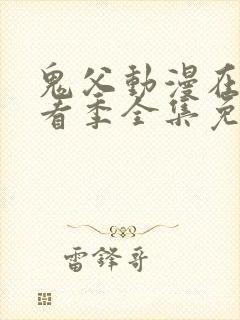 鬼父動漫在
看季全集免
雷鋒哥